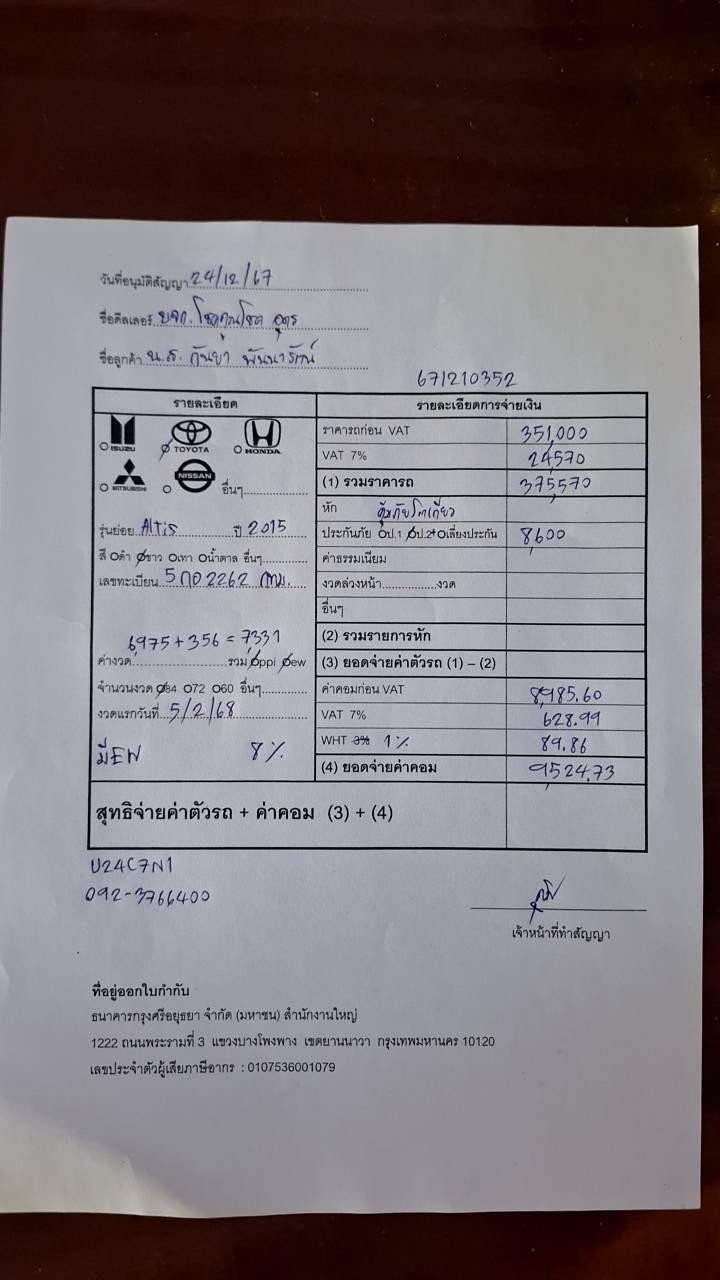 วันที่อนุมัติสัญญา 24/12/67
ชื่อดีลเลอร์ บจก. โชคคูณโชค อุดร
ชื่อลูกค้า น.ส. กันยา พันนารัตน์
671210352
รายละเอียด
รายละเอียดการจ่ายเงิน
ISUZU TOYOTA HONDA
MITSUBISHI NISSAN อื่นๆ
รุ่นย่อย Altis ปี 2015
สี ดำ ขาว เทา น้ำตาล อื่นๆ
เลขทะเบียน 5กด2262 กทม.
6,975 + 356 = 7,331
ค่างวด รวม ppi ew
จำนวนงวด 84 72 60 อื่นๆ
งวดแรกวันที่ 5/2/68
มีEW 8%
ราคารถก่อน VAT 351,000
VAT 7% 24,570
(1) รวมราคารถ 375,570
หัก คุ้มภัยโตเกียว
ประกันภัย ป.1 ป.2+ เลี่ยงประกัน 8,600
ค่าธรรมเนียม
งวดล่วงหน้า งวด
อื่นๆ
(2) รวมรายการหัก
(3) ยอดจ่ายค่าตัวรถ (1) – (2)
ค่าคอมก่อน VAT 8,985.60
VAT 7% 628.99
WHT 3% 1% 89.86
(4) ยอดจ่ายค่าคอม 9,524.73
สุทธิจ่ายค่าตัวรถ + ค่าคอม (3) + (4)
U24C7N1
092-3766400
เจ้าหน้าที่ทำสัญญา
ที่อยู่ออกใบกำกับ
ธนาคารกรุงศรีอยุธยา จำกัด (มหาชน) สำนักงานใหญ่
1222 ถนนพระรามที่ 3 แขวงบางโพงพาง เขตยานนาวา กรุงเทพมหานคร 10120
เลขประจำตัวผู้เสียภาษีอากร : 0107536001079